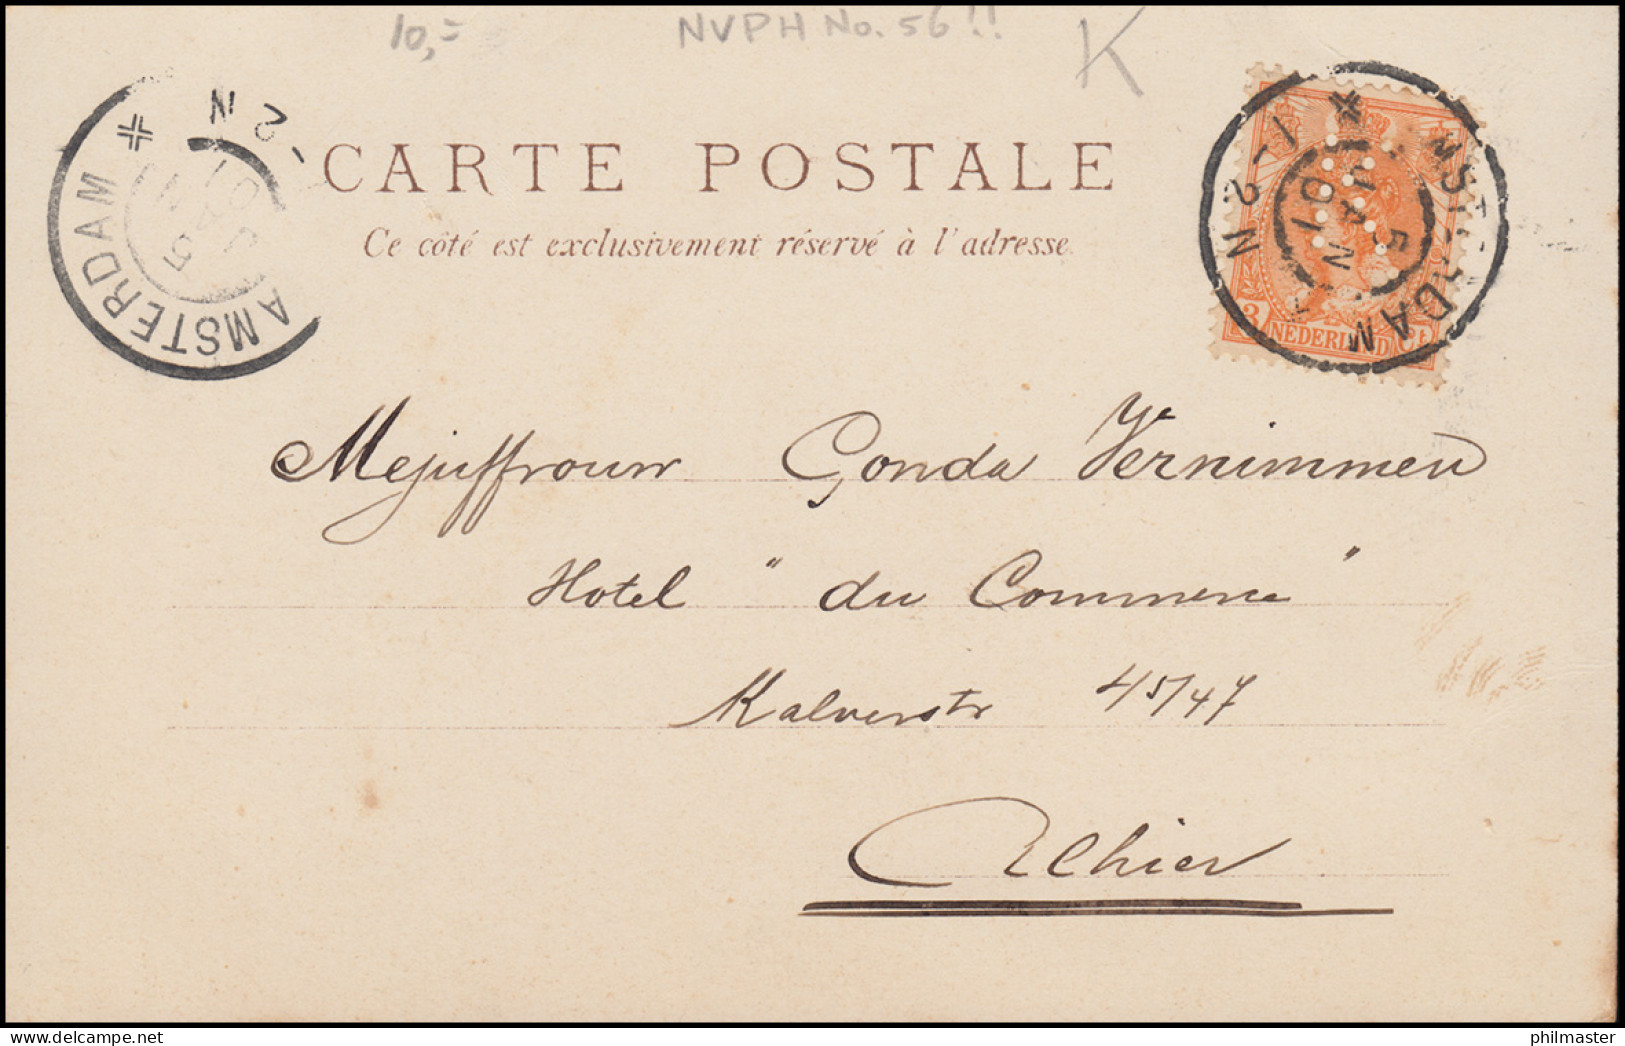 10,=
NVPH No. 56!!
K
AMSTERDAM
5 JAN 01
1-2 N
CARTE POSTALE
Ce côté est exclusivement réservé à l'adresse.
AMSTERDAM
5 JAN 01
1-2 N
3 NEDERLAND Ct
Mejuffrouw Gonda Vernimmen
Hotel "du Commerce"
Kalverstr 45/47
Alhier
philmaster